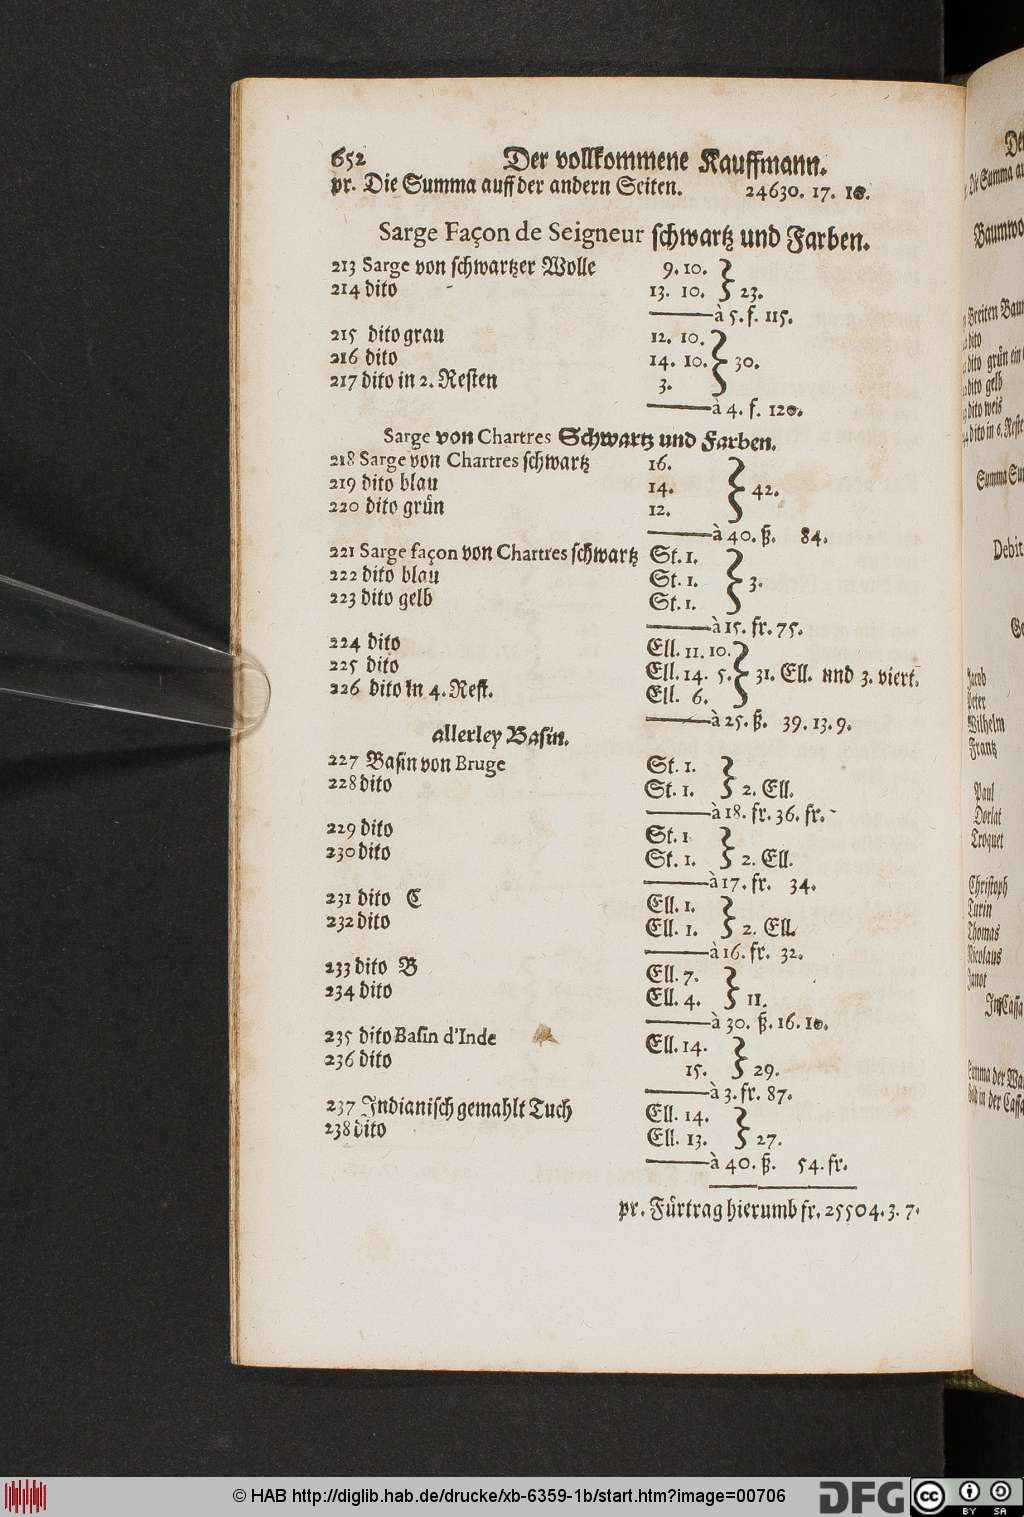 652 Der vollkommene Kauffmann.
pr. Die Summa auff der andern Seiten. 24630. 17. 10.
Sarge Façon de Seigneur schwartz und Farben.
213 Sarge von schwartzer Wolle 9. 10.
214 dito - 13. 10. } 23.
à 5. f. 115.
215 dito grau 12. 10.
216 dito 14. 10. } 30.
217 dito in 2. Resten 3.
à 4. f. 120.
Sarge von Chartres Schwartz und Farben.
218 Sarge von Chartres schwartz 16.
219 dito blau 14. } 42.
220 dito grün 12.
à 40. ß. 84.
221 Sarge façon von Chartres schwartz St. 1.
222 dito blau St. 1. } 3.
223 dito gelb St. 1.
à 15. fr. 75.
224 dito Ell. 11. 10.
225 dito Ell. 14. 5. } 31. Ell. und 3. viert.
226 dito in 4. Rest. Ell. 6.
à 25. ß. 39. 13. 9.
allerley Basin.
227 Basin von Bruge St. 1.
228 dito St. 1. } 2. Ell.
à 18. fr. 36. fr.
229 dito St. 1
230 dito St. 1. } 2. Ell.
à 17. fr. 34.
231 dito C Ell. 1.
232 dito Ell. 1. } 2. Ell.
à 16. fr. 32.
233 dito B Ell. 7.
234 dito Ell. 4. } 11.
à 30. ß. 16. 10.
235 dito Basin d'Inde Ell. 14.
236 dito 15. } 29.
à 3. fr. 87.
237 Indianisch gemahlt Tuch Ell. 14.
238 dito Ell. 13. } 27.
à 40. ß. 54. fr.
pr. Fürtrag hierumb fr. 25504. 3. 7.
Baumwo
Breiten Bau
dito
dito grün ein
dito gelb
dito weis
dito in 6. Reste
Summa Su
Debit
Jacob
Peter
Wilhelm
Frantz
Paul
Dorlat
Troquet
Christoph
Turin
Thomas
Nicolaus
Janot
In Cassa
Summa der Wa
in der Cassa
© HAB http://diglib.hab.de/drucke/xb-6359-1b/start.htm?image=00706
DFG
cc BY SA